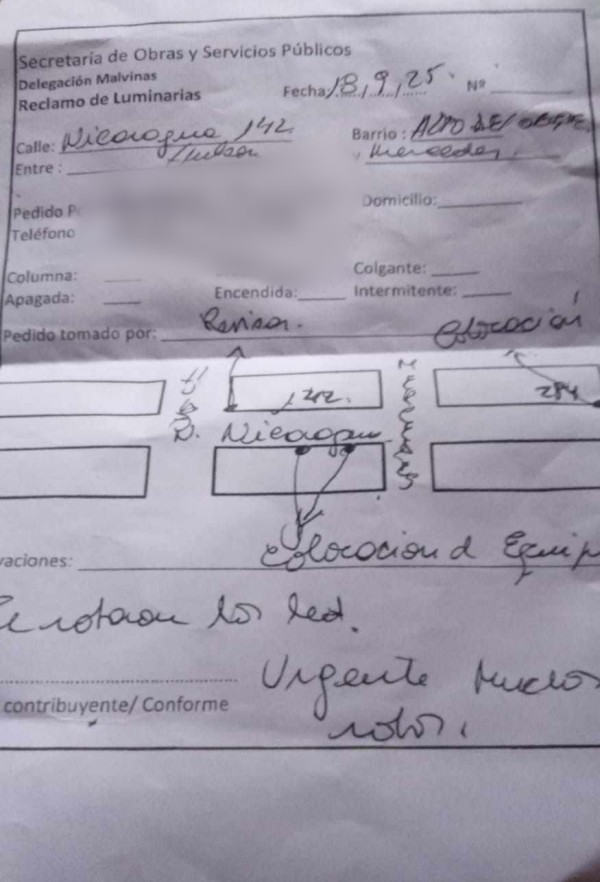 Secretaría de Obras y Servicios Públicos
Delegación Malvinas
Reclamo de Luminarias
Fecha 18, 9, 25. Nº
Calle: Nicaragua 142 Barrio: ALTO DEL
Entre: Mercedes
Pedido P
Domicilio:
Teléfono
Columna: Colgante:
Apagada: Encendida: Intermitente:
Pedido tomado por: Revisar. Colocación
142. 284
Nicaragua
vaciones: Colocacion d Equip
los led.
Urgente muchos
contribuyente/ Conforme
robos.